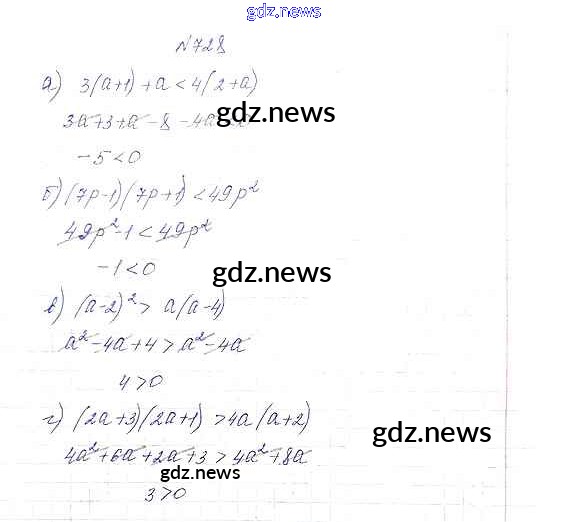 gdz.news
№728
а) 3(a+1)+a<4(2+a)
3a+3+a-8-4a
gdz.news
-5<0
б) (7p-1)(7p+1)<49p²
49p²-1<49p²
-1<0
gdz.news
в) (a-2)²> a(a-4)
a²-4a+4>a²-4a
4>0
г) (2a+3)(2a+1)>4a(a+2)
gdz.news
4a²+6a+2a+3>4a²+8a
gdz.news
3>0